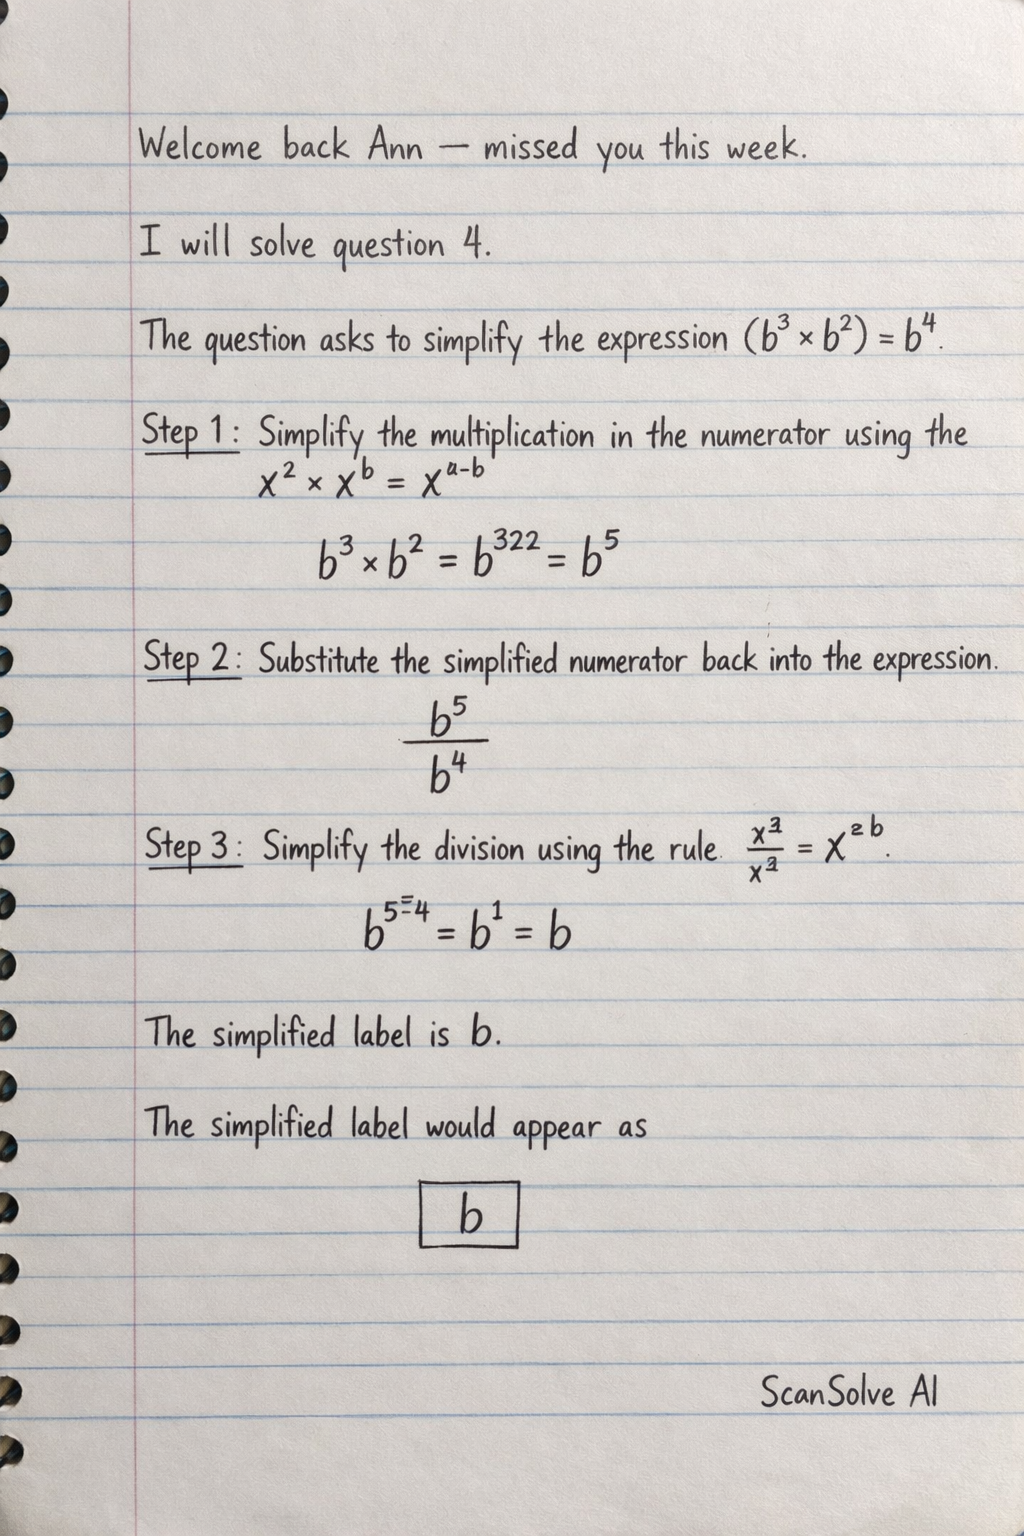 Welcome back Ann — missed you this week.
I will solve question 4.
The question asks to simplify the expression (b³ × b²) = b⁴.
Step 1: Simplify the multiplication in the numerator using the
x² × xᵇ = xᵃ⁻ᵇ
b³ × b² = b³²² = b⁵
Step 2: Substitute the simplified numerator back into the expression.
b⁵
b⁴
Step 3: Simplify the division using the rule
= x
b⁵⁼⁴ = b¹ = b
The simplified label is b.
The simplified label would appear as
b
ScanSolve AI